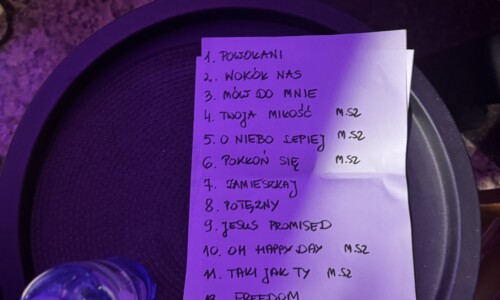 1. POWOŁANI
2. WOKÓŁ NAS
3. MÓW DO MNIE
4. TWOJA MIŁOŚĆ M.SZ
5. O NIEBO LEPIEJ M.SZ
6. POKŁOŃ SIĘ M.SZ
7. ZAMIESZKAJ
8. POTĘŻNY
9. JESUS PROMISED
10. OH HAPPY DAY M.SZ
11. TAKI JAK TY M.SZ
12. FREEDOM